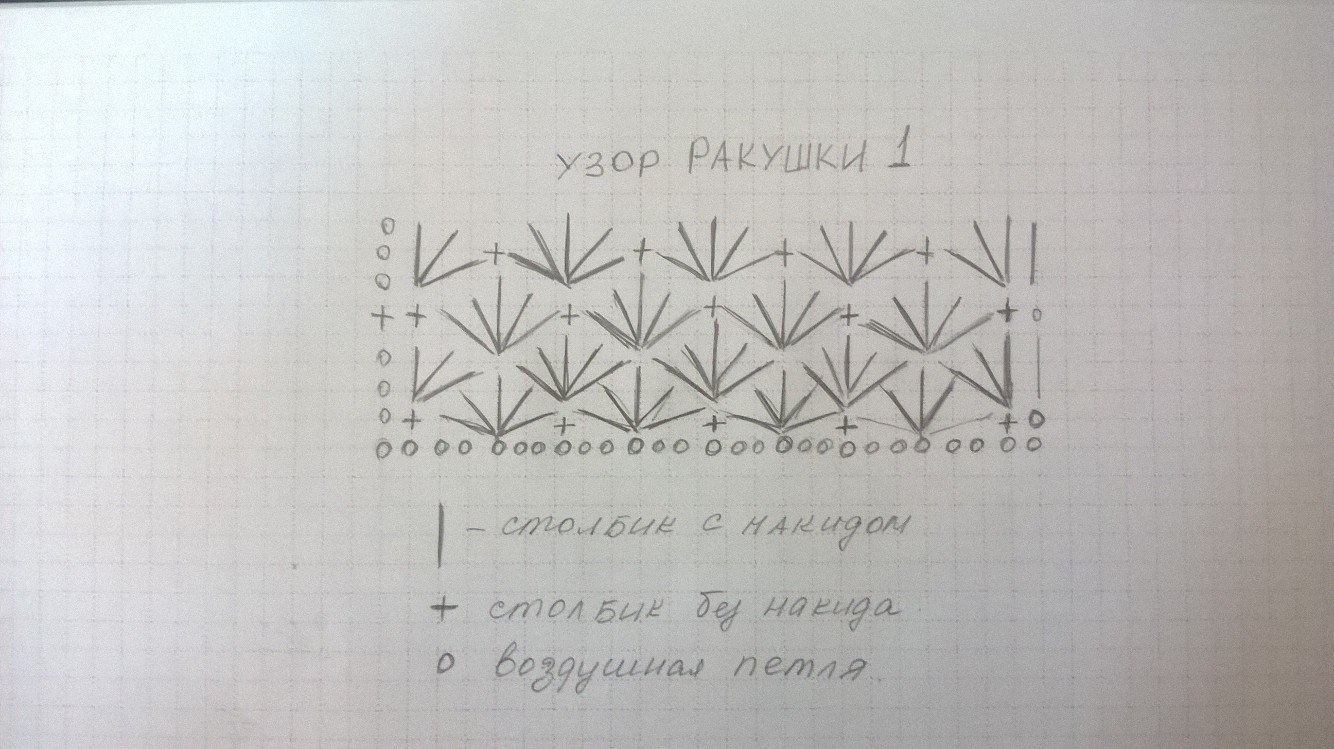 УЗОР РАКУШКИ 1
| - столбик с накидом
+ столбик без накида
о воздушная петля.